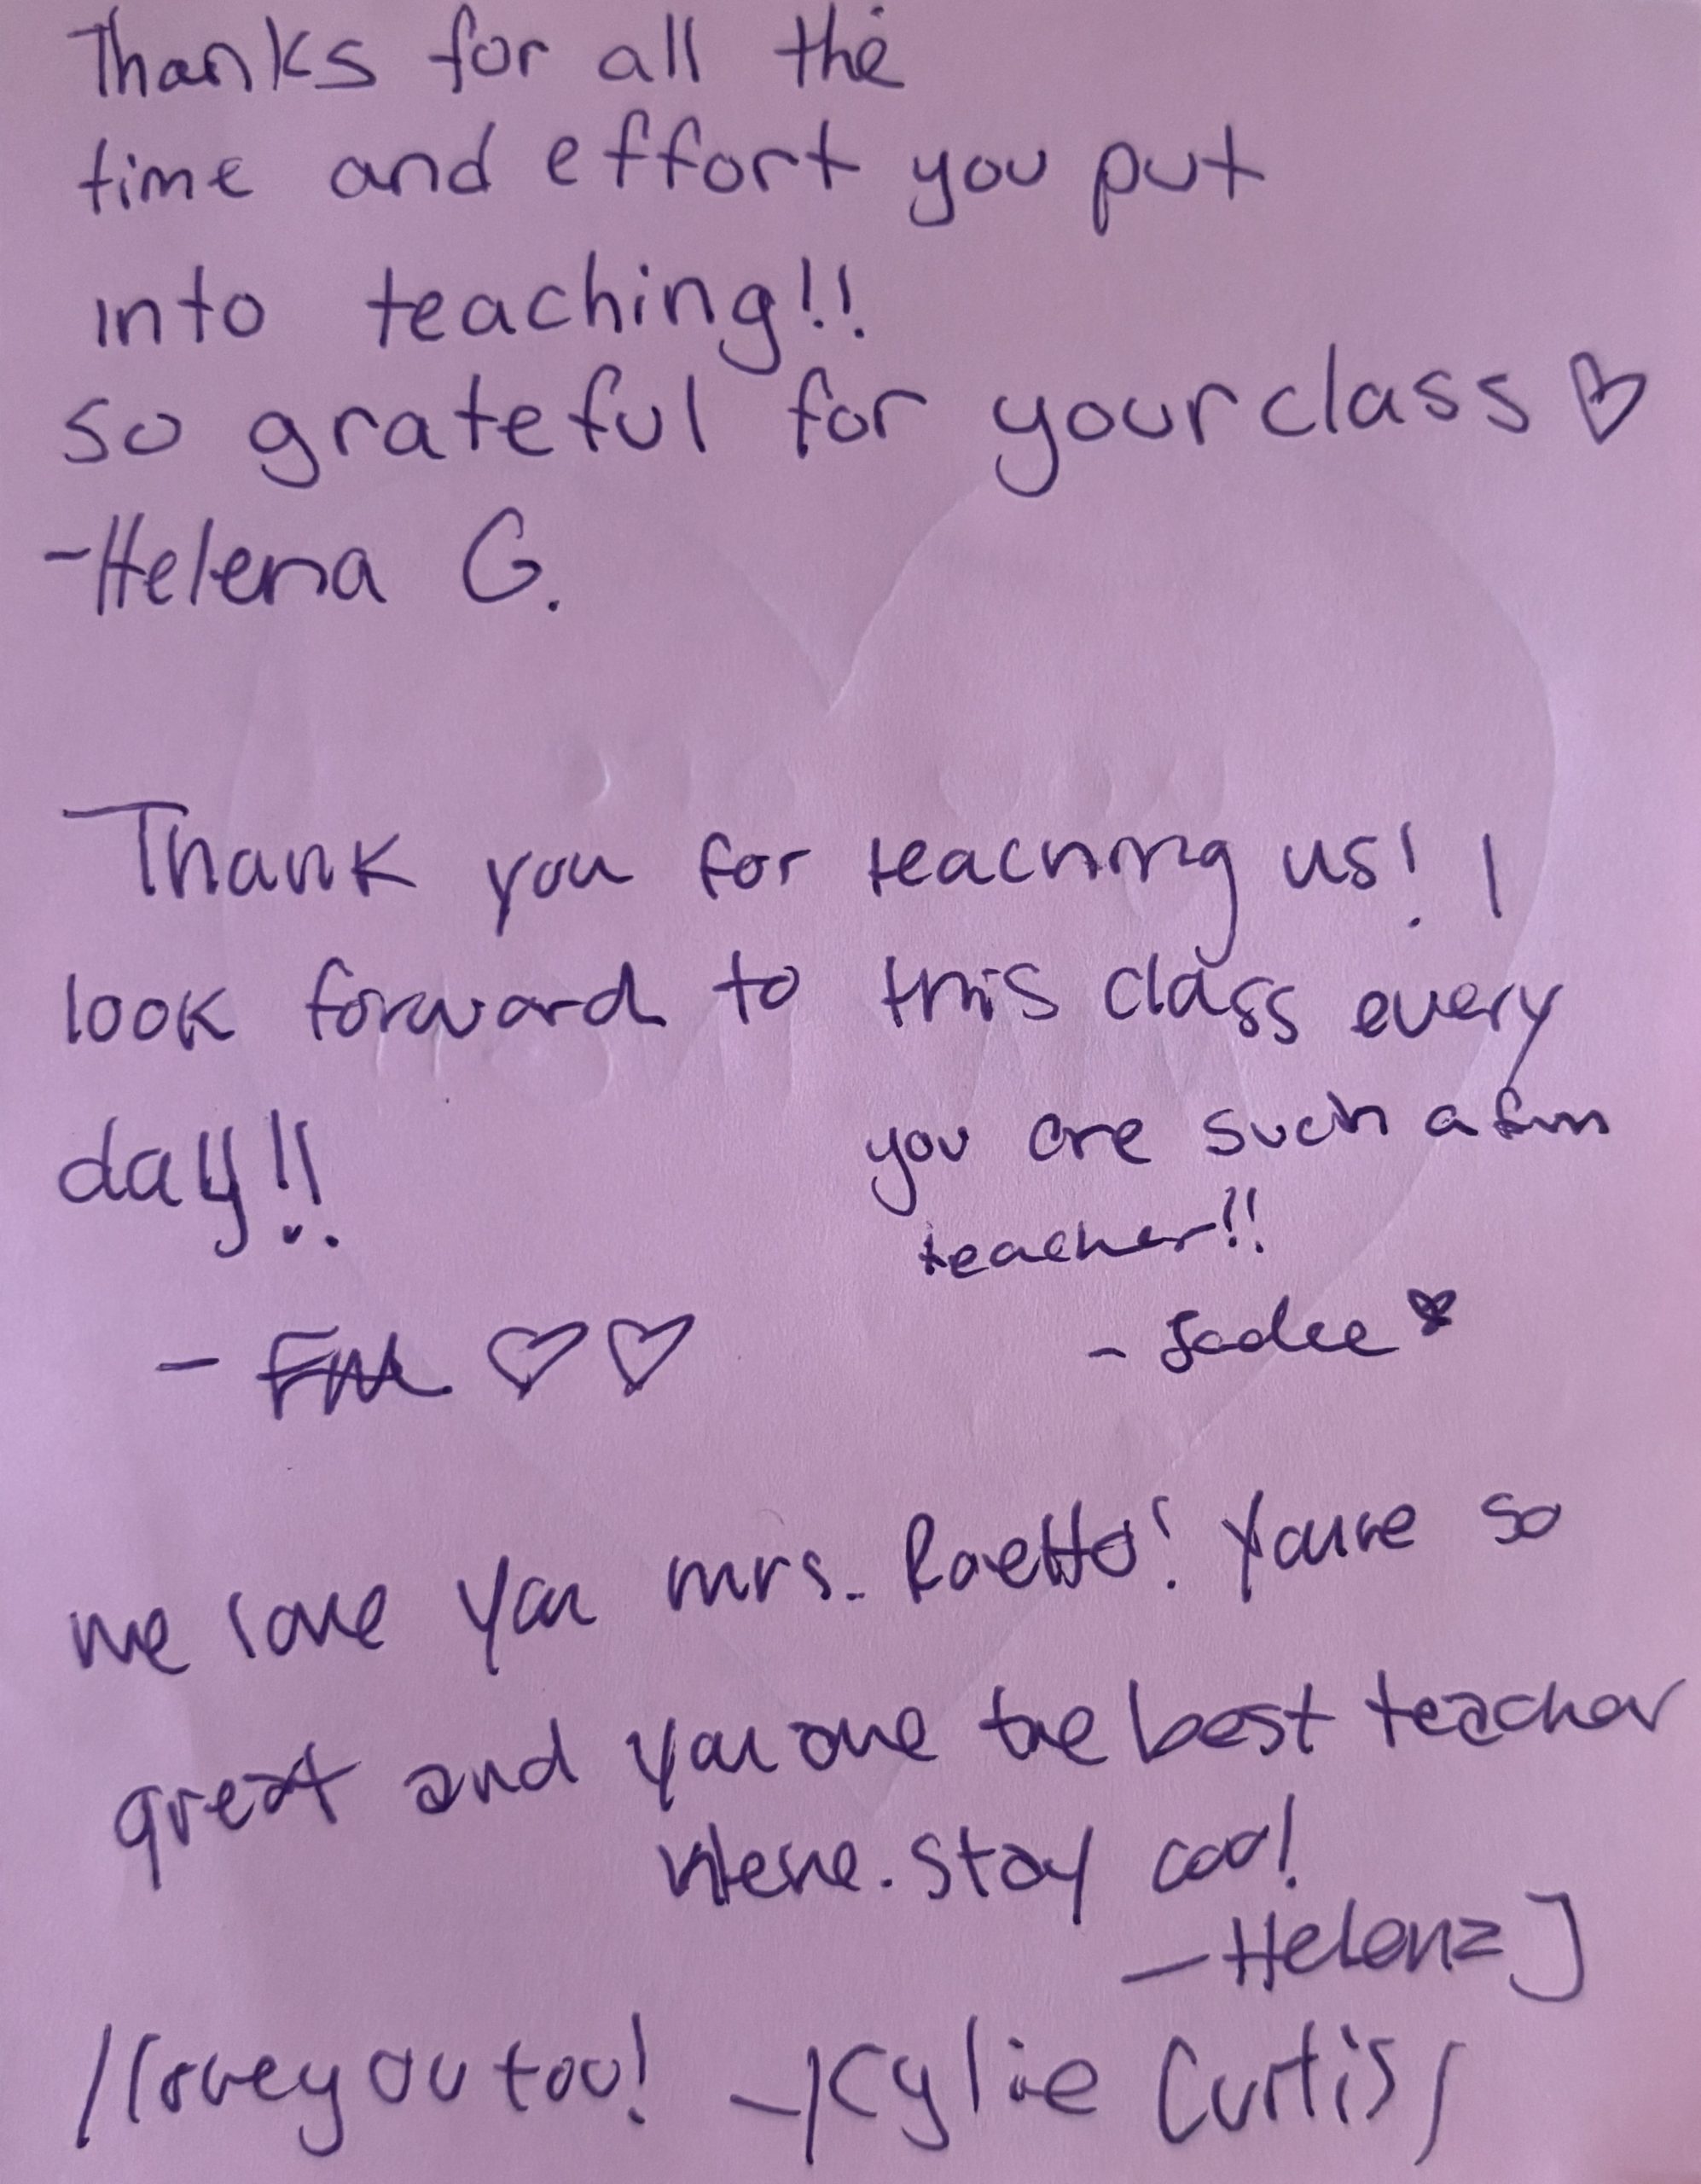 Thanks for all the
time and effort you put
into teaching!!
so grateful for your class ♡
-Helena G.
Thank you for teaching us! I
look forward to this class every
day!!
- ♡♡
you are such a fun
teacher!!
- Sadee ♡
we love you mrs. Raetto! You're so
great and you are the best teacher
here. stay cool!
- Helena J
I love you too! - Kylie Curtis